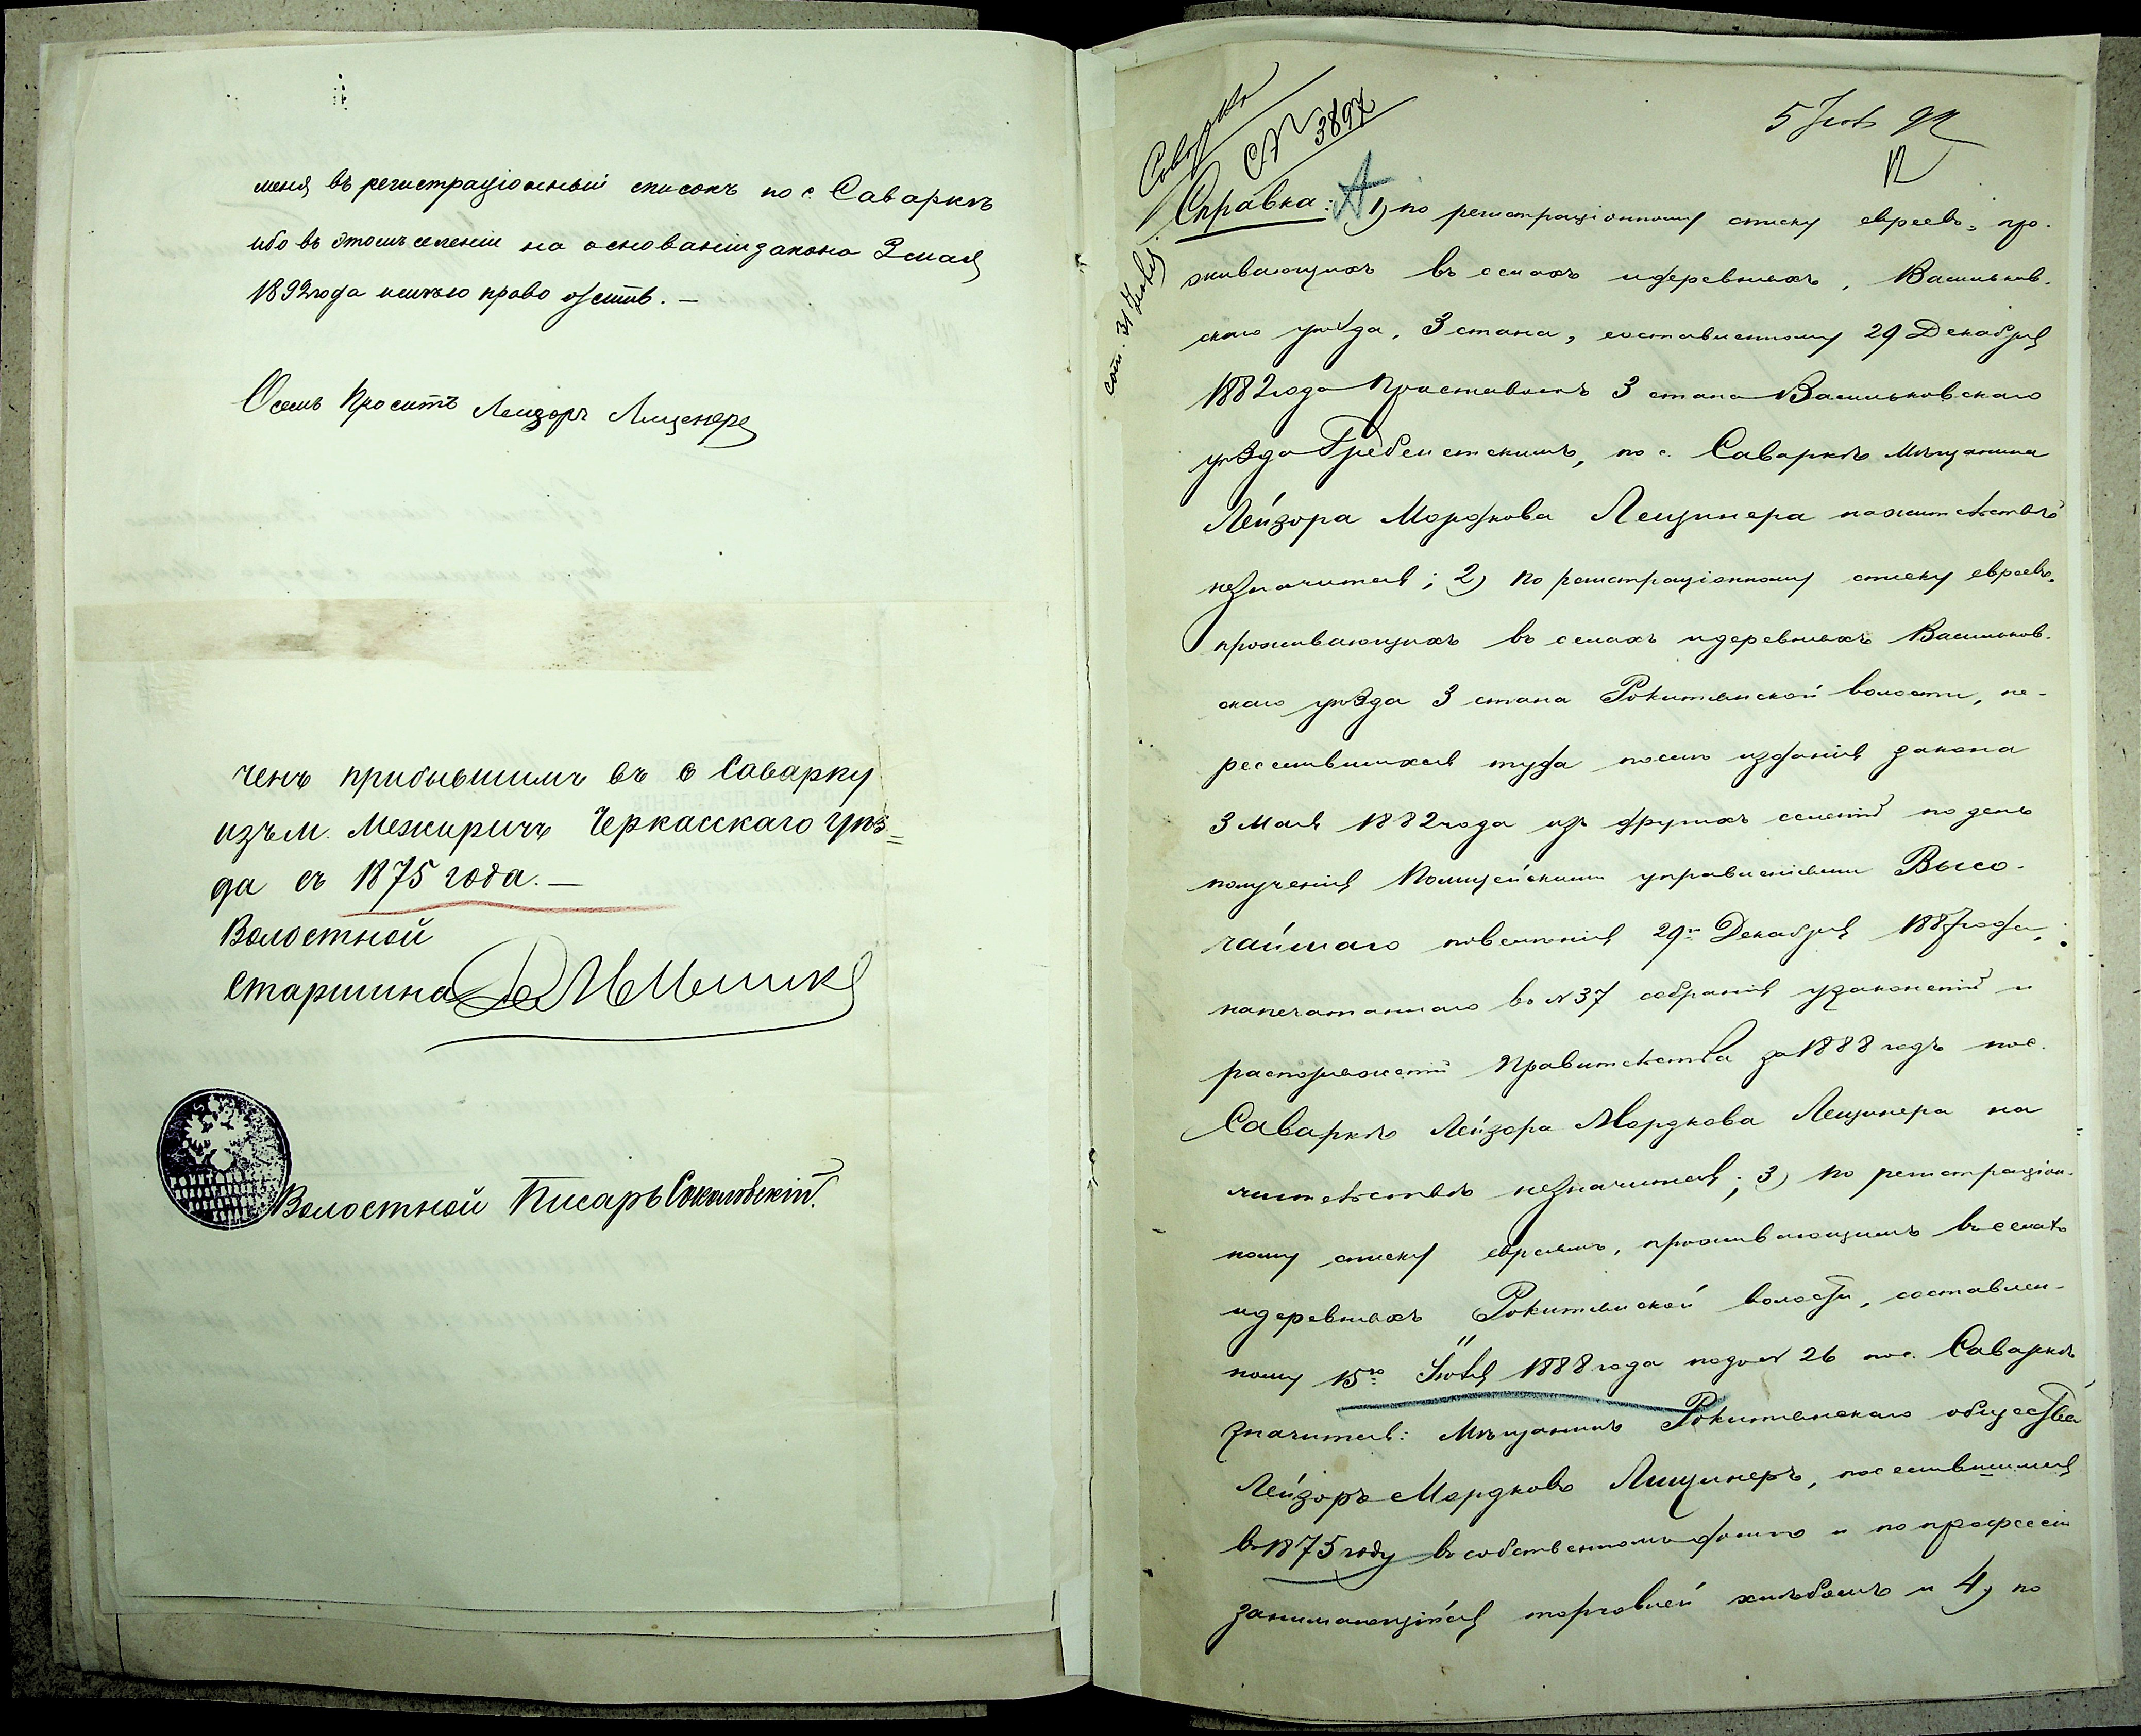 меня въ регистраціонный списокъ по с. Саваркѣ
ибо въ этомъ селеніи на основаніи закона 3 мая
1892 года имѣю право
О семъ проситъ Лейзоръ Лищенеръ
ченъ прибывшимъ въ с Саварку
изъ м. Межиричъ Черкасскаго уѣз=
да съ 1875 года. —
Волостной
Старшина
Волостной Писарь Соколовскій.
5 92
12
Саварка
№ 3897
Справка: А 1) по регистраціонному списку евреевъ, про-
живающихъ въ селахъ и деревняхъ, Васильков-
скаго уѣзда, 3 стана, составленному 29 Декабря
1882 года Приставомъ 3 стана Васильковскаго
уѣзда Гребенетскимъ, по с. Саваркѣ мѣщанина
Лейзора Мордкова Лещинера на жительствѣ
не значится; 2) по регистраціонному списку евреевъ,
проживающихъ въ селахъ и деревняхъ Васильков-
скаго уѣзда 3 стана Рокитянской волости, пе-
реселившихся туда послѣ изданія закона
3 Мая 1882 года изъ другихъ селеній по день
полученія Полицейскими управленіями Высо-
чайшаго повелѣнія 29го Декабря 1887 года,
напечатаннаго въ № 37 собранія узаконеній и
распоряженій Правительства за 1888 годъ по с.
Саваркѣ Лейзора Мордкова Лещинера на
жительствѣ не значится; 3) по регистраціон-
ному списку евреямъ, проживающимъ въ селахъ
и деревняхъ Рокитянской волости, составлен-
ному 15го Іюля 1888 года подъ № 26 по с. Саваркѣ
значится: Мѣщанинъ Рокитянскаго общества
Лейзоръ Мордковъ Лищинеръ, поселившійся
въ 1875 году въ собственномъ домѣ и по профессіи
занимающійся торговлей хлѣбомъ и 4) по